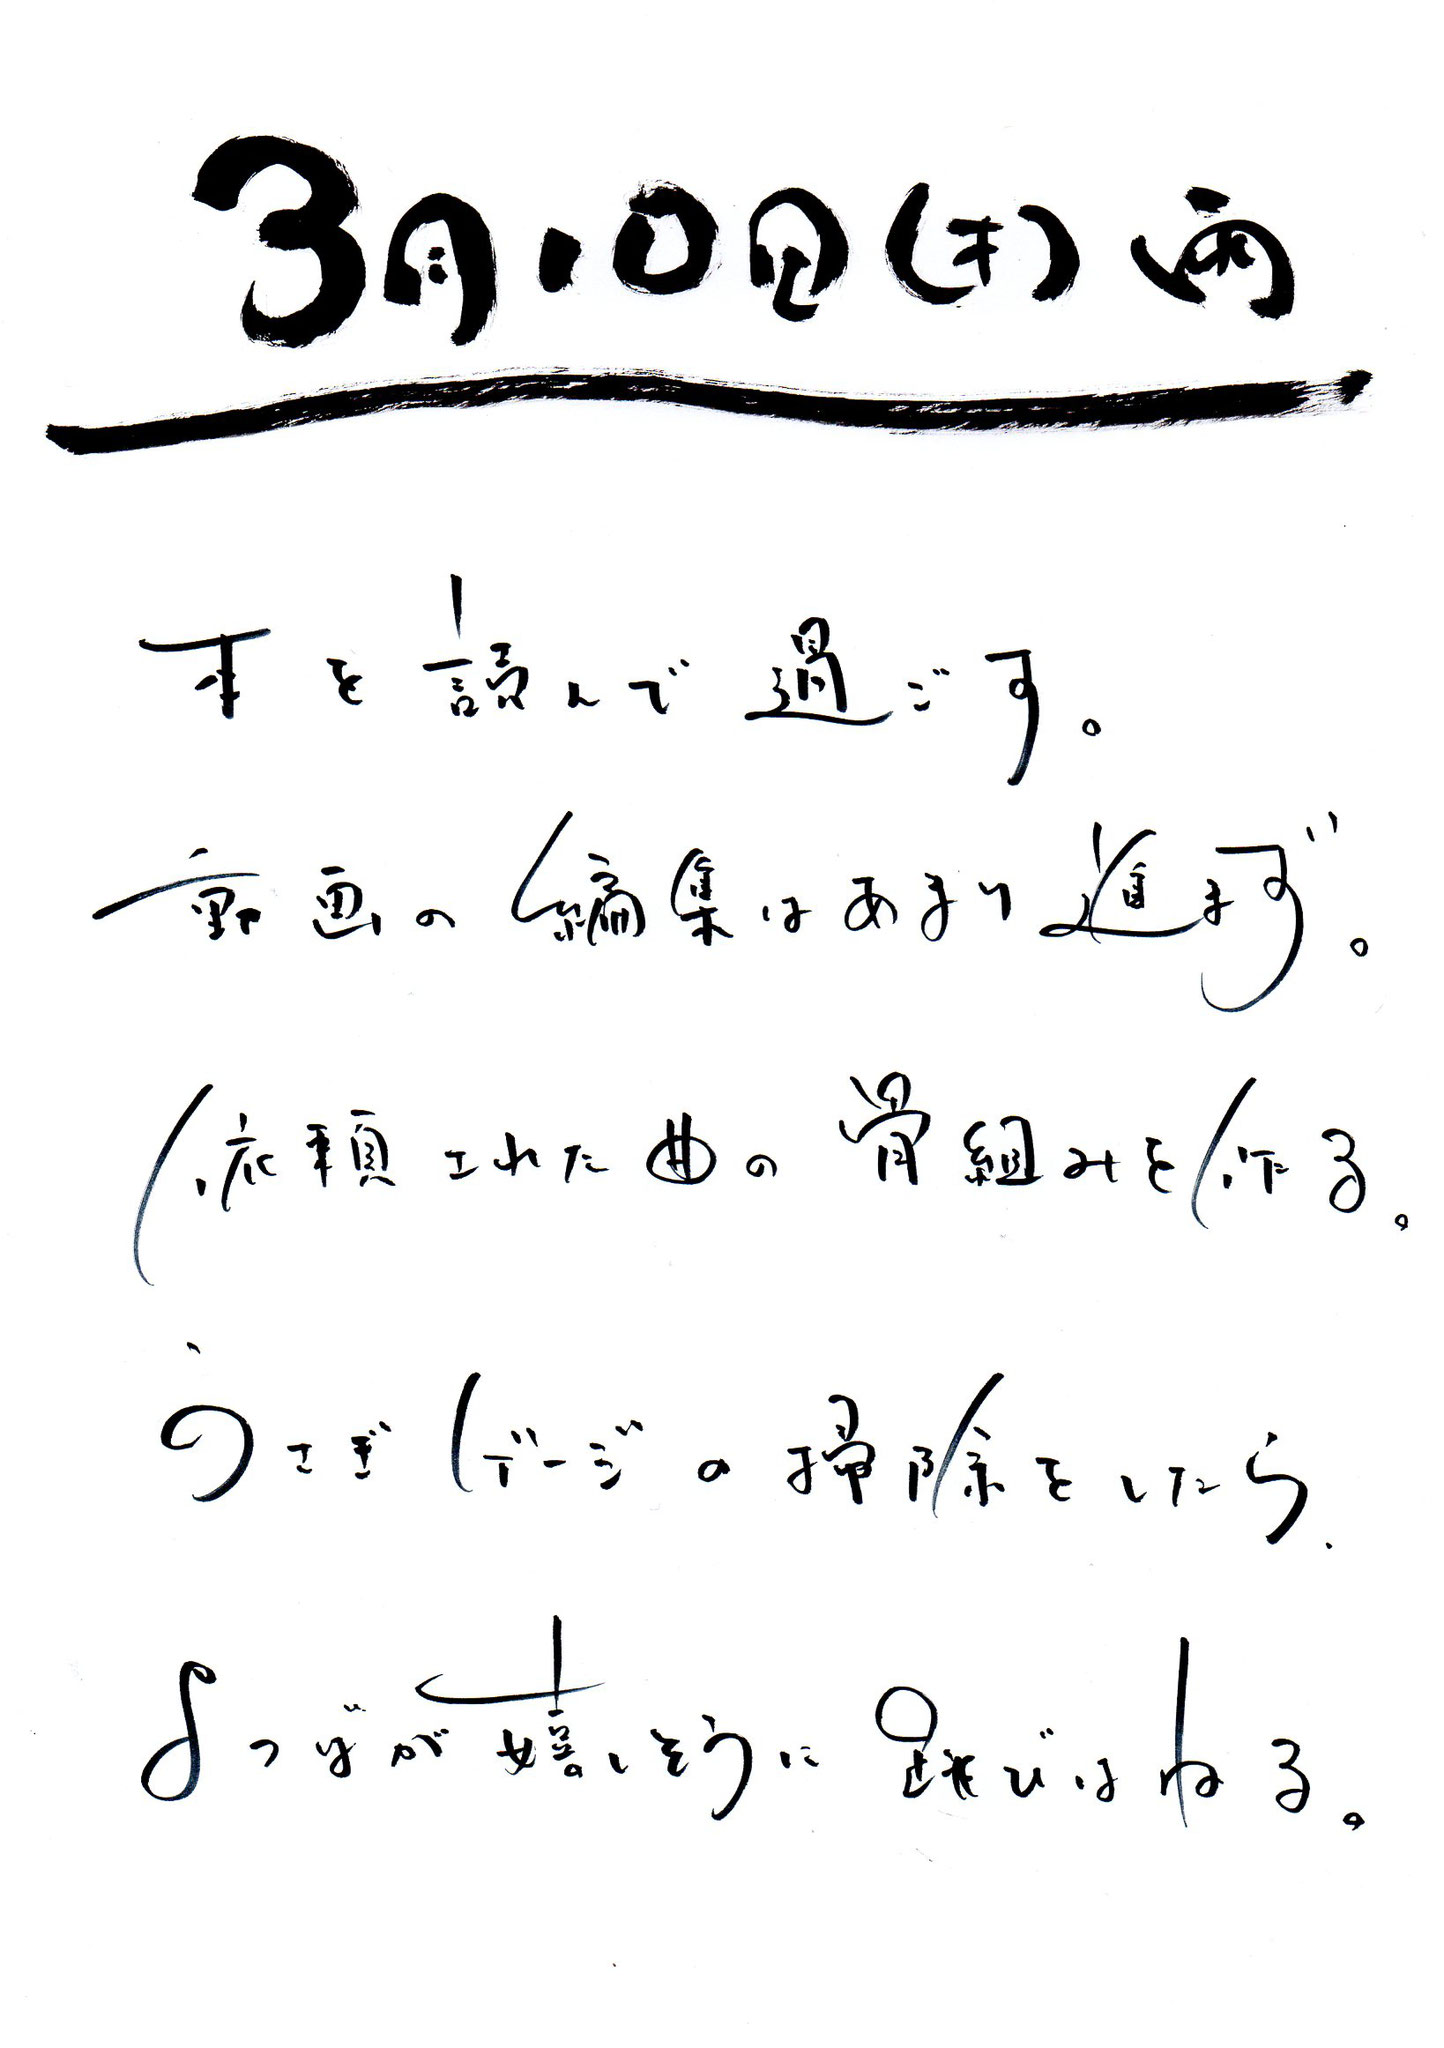 3月10日(木) 雨
本を読んで過ごす。
動画の編集はあまり進まず。
依頼された曲の骨組みを作る。
うさぎゲージの掃除をしたら、
よつばが嬉しそうに跳びはねる。